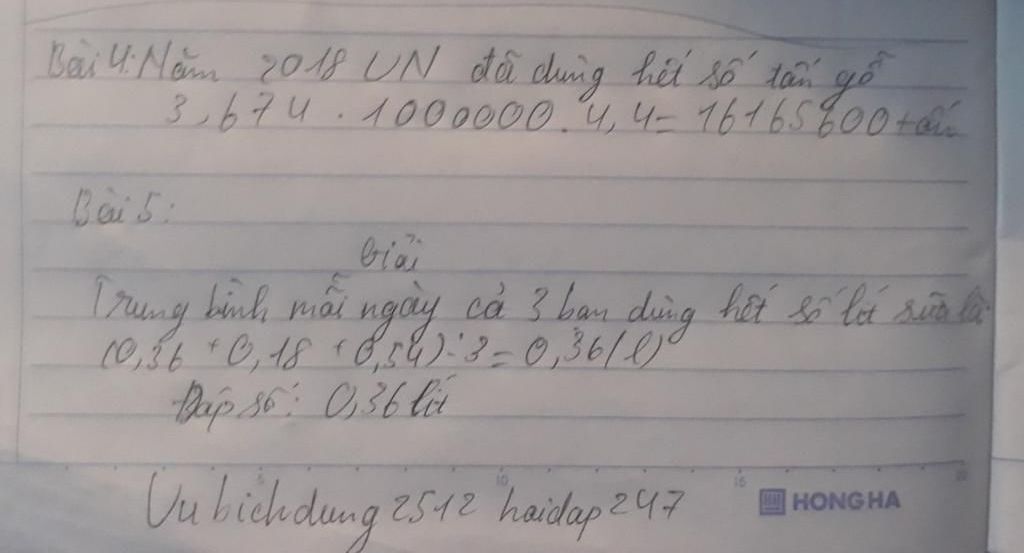 Bài 4: Năm 2018 VN đã dùng hết số tấn gỗ
3,674 . 1000000 . 4,4 = 16165600 tấn
Bài 5:
Giải
Trung bình mỗi ngày cả 3 bạn dùng hết số lít sữa là
(0,36 + 0,18 + 0,54) : 3 = 0,36 (l)
Đáp số: 0,36 lít
5 10 15 20
Vubichdung2512 hoidap247
HONG HA